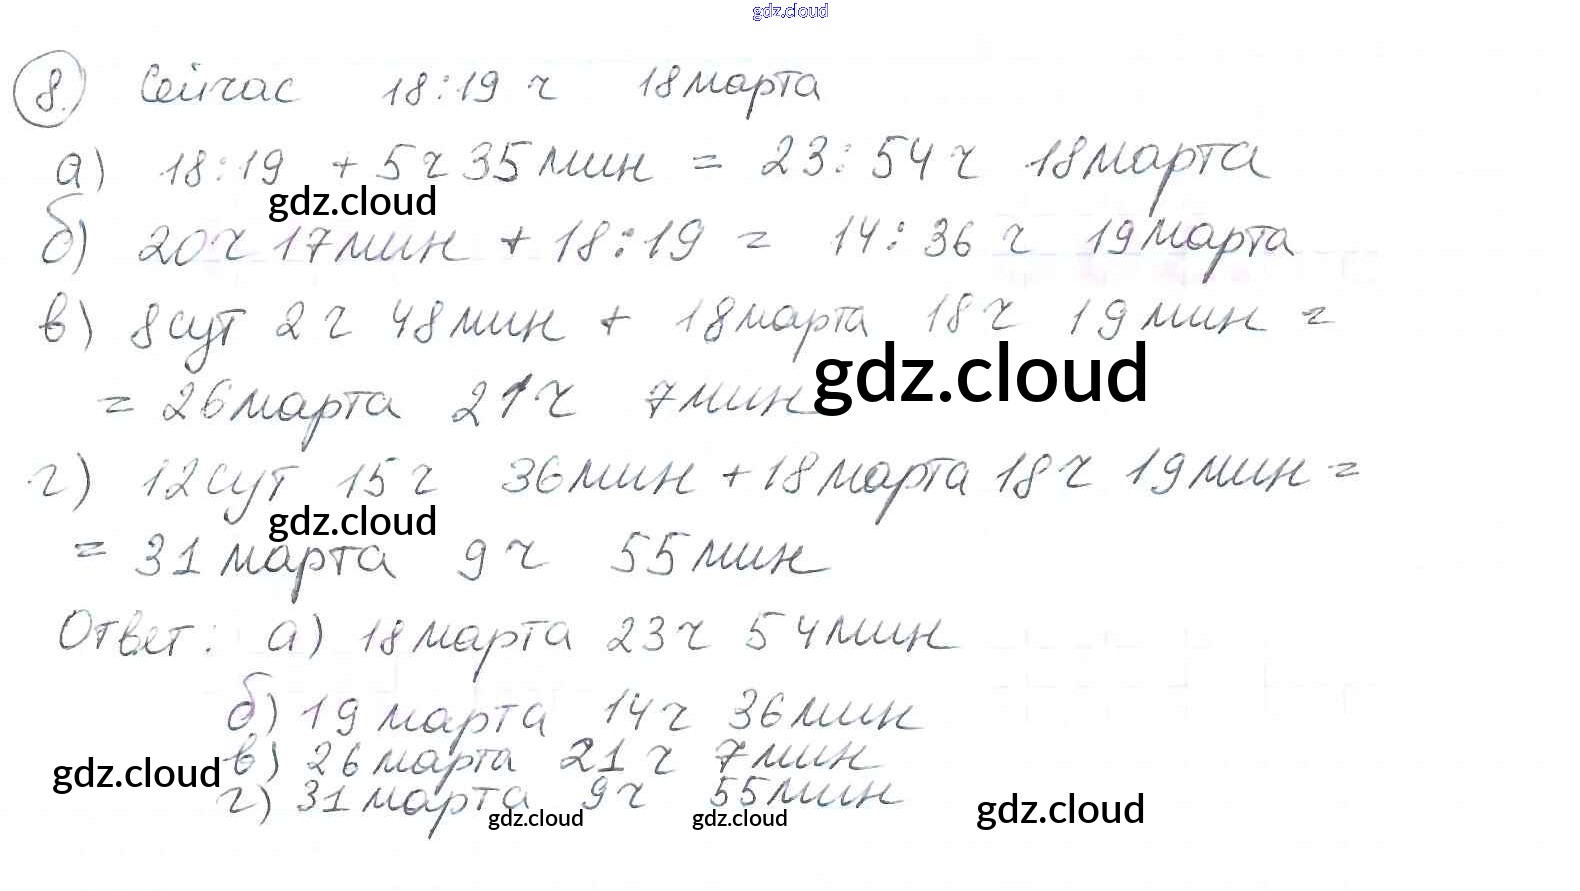 gdz.cloud
8. Сейчас 18:19 ч 18 марта
а) 18:19 + 5 ч 35 мин = 23:54 ч 18 марта
gdz.cloud
б) 20 ч 17 мин + 18:19 = 14:36 ч 19 марта
в) 8 сут 2 ч 48 мин + 18 марта 18 ч 19 мин =
gdz.cloud
= 26 марта 21 ч 7 мин
г) 12 сут 15 ч 36 мин + 18 марта 18 ч 19 мин =
gdz.cloud
= 31 марта 9 ч 55 мин
Ответ: а) 18 марта 23 ч 54 мин
б) 19 марта 14 ч 36 мин
в) 26 марта 21 ч 7 мин
gdz.cloud
г) 31 марта 9 ч 55 мин
gdz.cloud gdz.cloud gdz.cloud